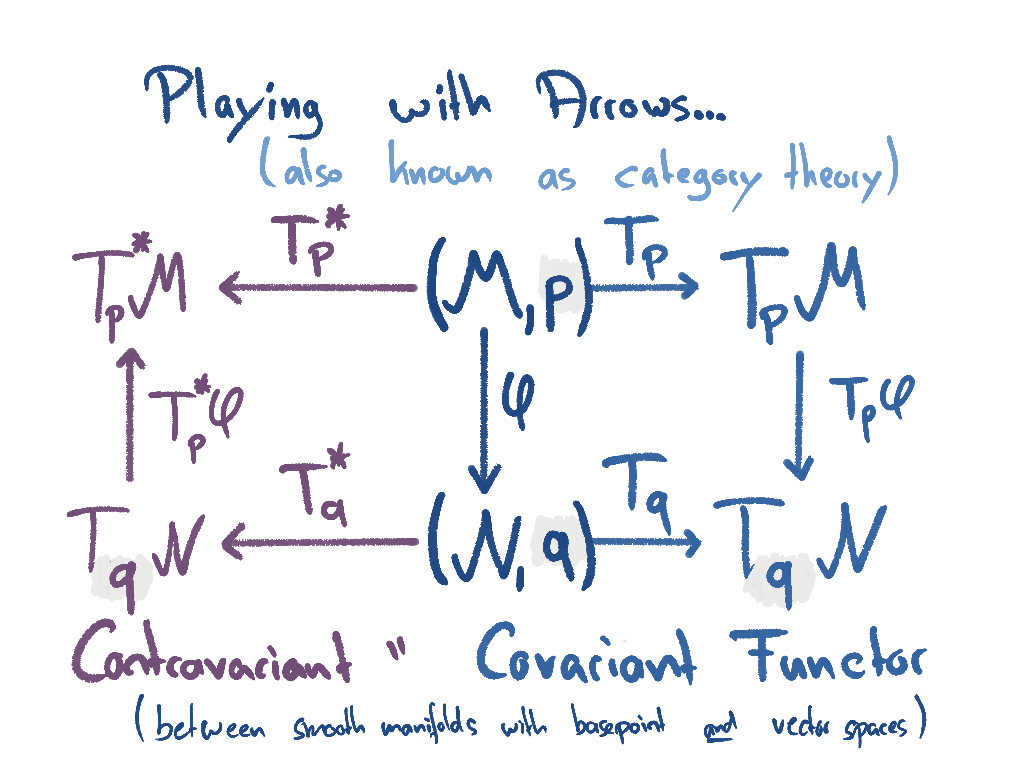 Playing with Arrows...
(also known as category theory)
T_p^* T_p
T_p^*M (M,p) T_pM
T_p^*φ φ T_pφ
T_q^* T_q
T_qN (N,q) T_qN
Contravariant " Covariant Functor
(between smooth manifolds with basepoint and vector spaces)